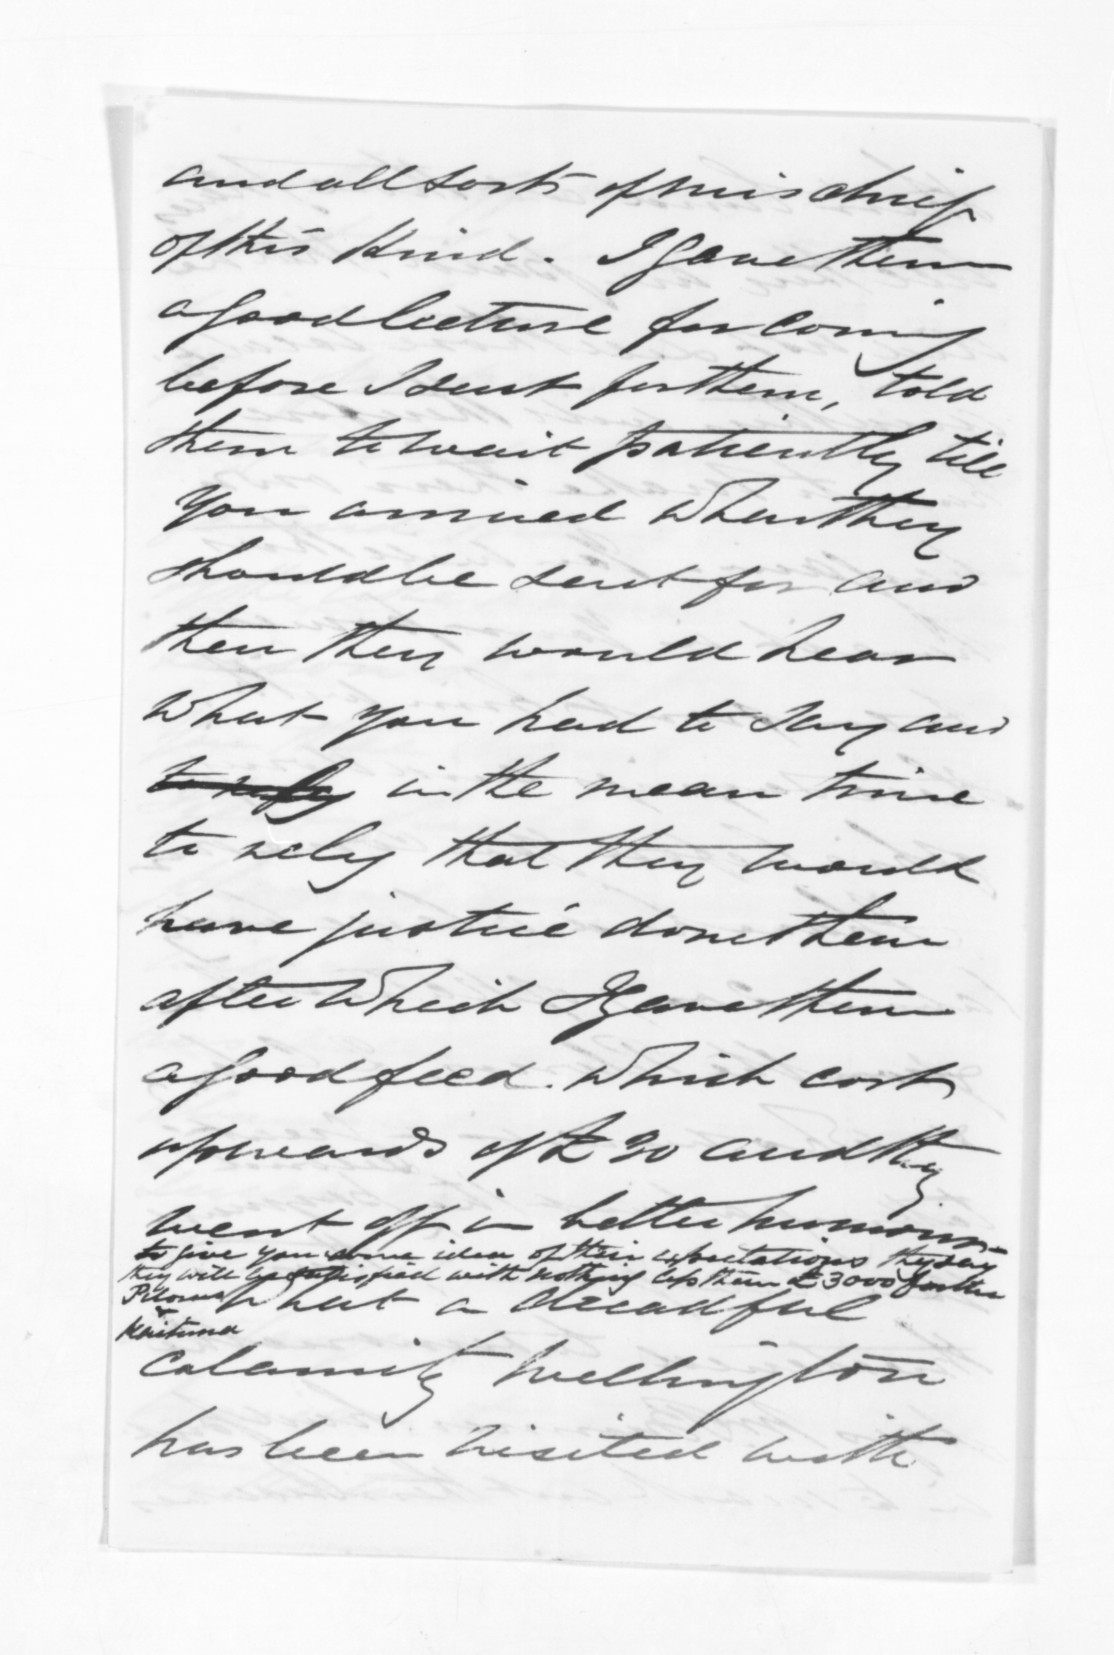 and all sorts of mischief
of this kind. I gave them
a good lecture for coming
before I sent for them, told
them to wait patiently till
you arrived when they
should be sent for and
then they would hear
what you had to say and
to rely in the mean time
to rely that they would
have justice done them
after which I gave them
a good feed. which cost
upwards of £30 and they
went off in better humour -
to give you some idea of their expectations they say
they will be satisfied with nothing less than £3000 for the
Pilorus &
Kaituna
What a dreadful
calamity Wellington
has been visited with